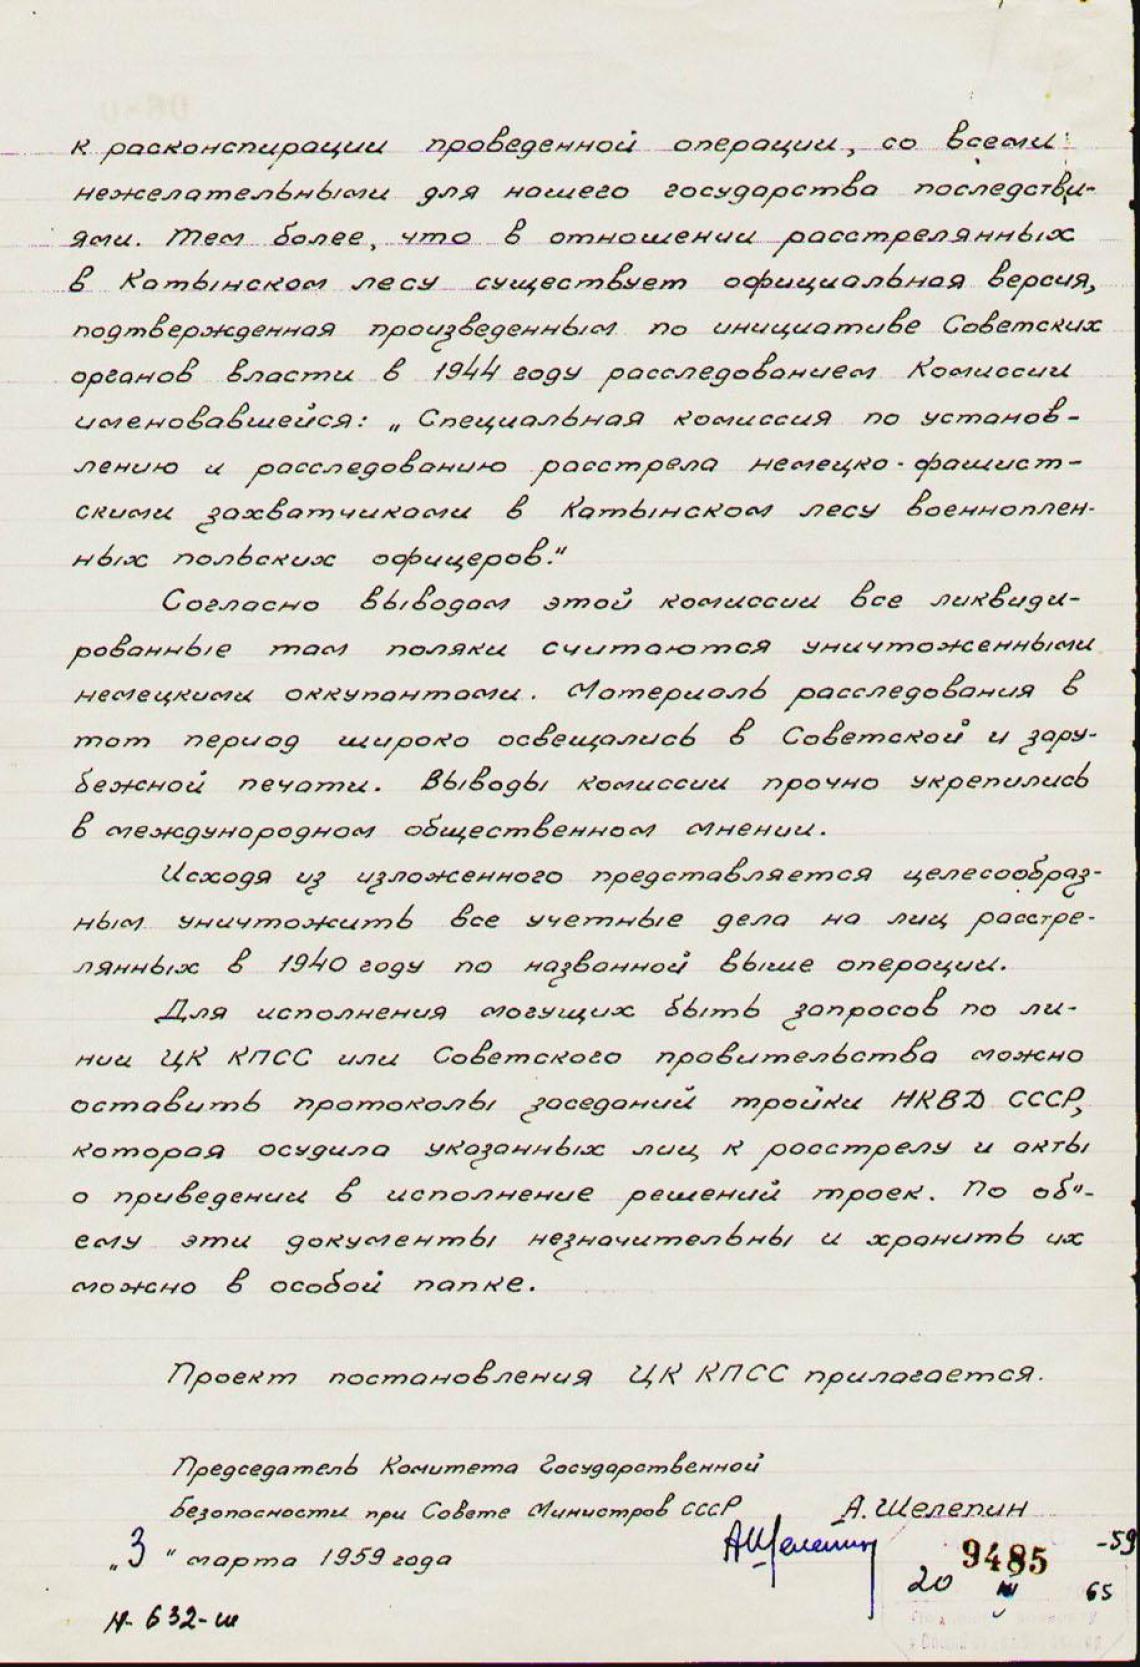 к расконспирации проведенной операции, со всеми
нежелательными для нашего государства последстви-
ями. Тем более, что в отношении расстрелянных
в Катынском лесу существует официальная версия,
подтвержденная произведенным по инициативе Советских
органов власти в 1944 году расследованием Комиссии
именовавшейся: „Специальная комиссия по установ-
лению и расследованию расстрела немецко-фашист-
скими захватчиками в Катынском лесу военноплен-
ных польских офицеров."
Согласно выводам этой комиссии все ликвиди-
рованные там поляки считаются уничтоженными
немецкими оккупантами. Материалы расследования в
тот период широко освещались в Советской и зару-
бежной печати. Выводы комиссии прочно укрепились
в международном общественном мнении.
Исходя из изложенного представляется целесообраз-
ным уничтожить все учетные дела на лиц расстре-
лянных в 1940 году по названной выше операции.
Для исполнения могущих быть запросов по ли-
нии ЦК КПСС или Советского правительства можно
оставить протоколы заседаний тройки НКВД СССР,
которая осудила указанных лиц к расстрелу и акты
о приведении в исполнение решений троек. По об"-
ему эти документы незначительны и хранить их
можно в особой папке.
Проект постановления ЦК КПСС прилагается.
Председатель Комитета Государственной
Безопасности при Совете Министров СССР А. Шелепин
„3" марта 1959 года АШелепин 9485 -59
20 III 65
Н-632-ш